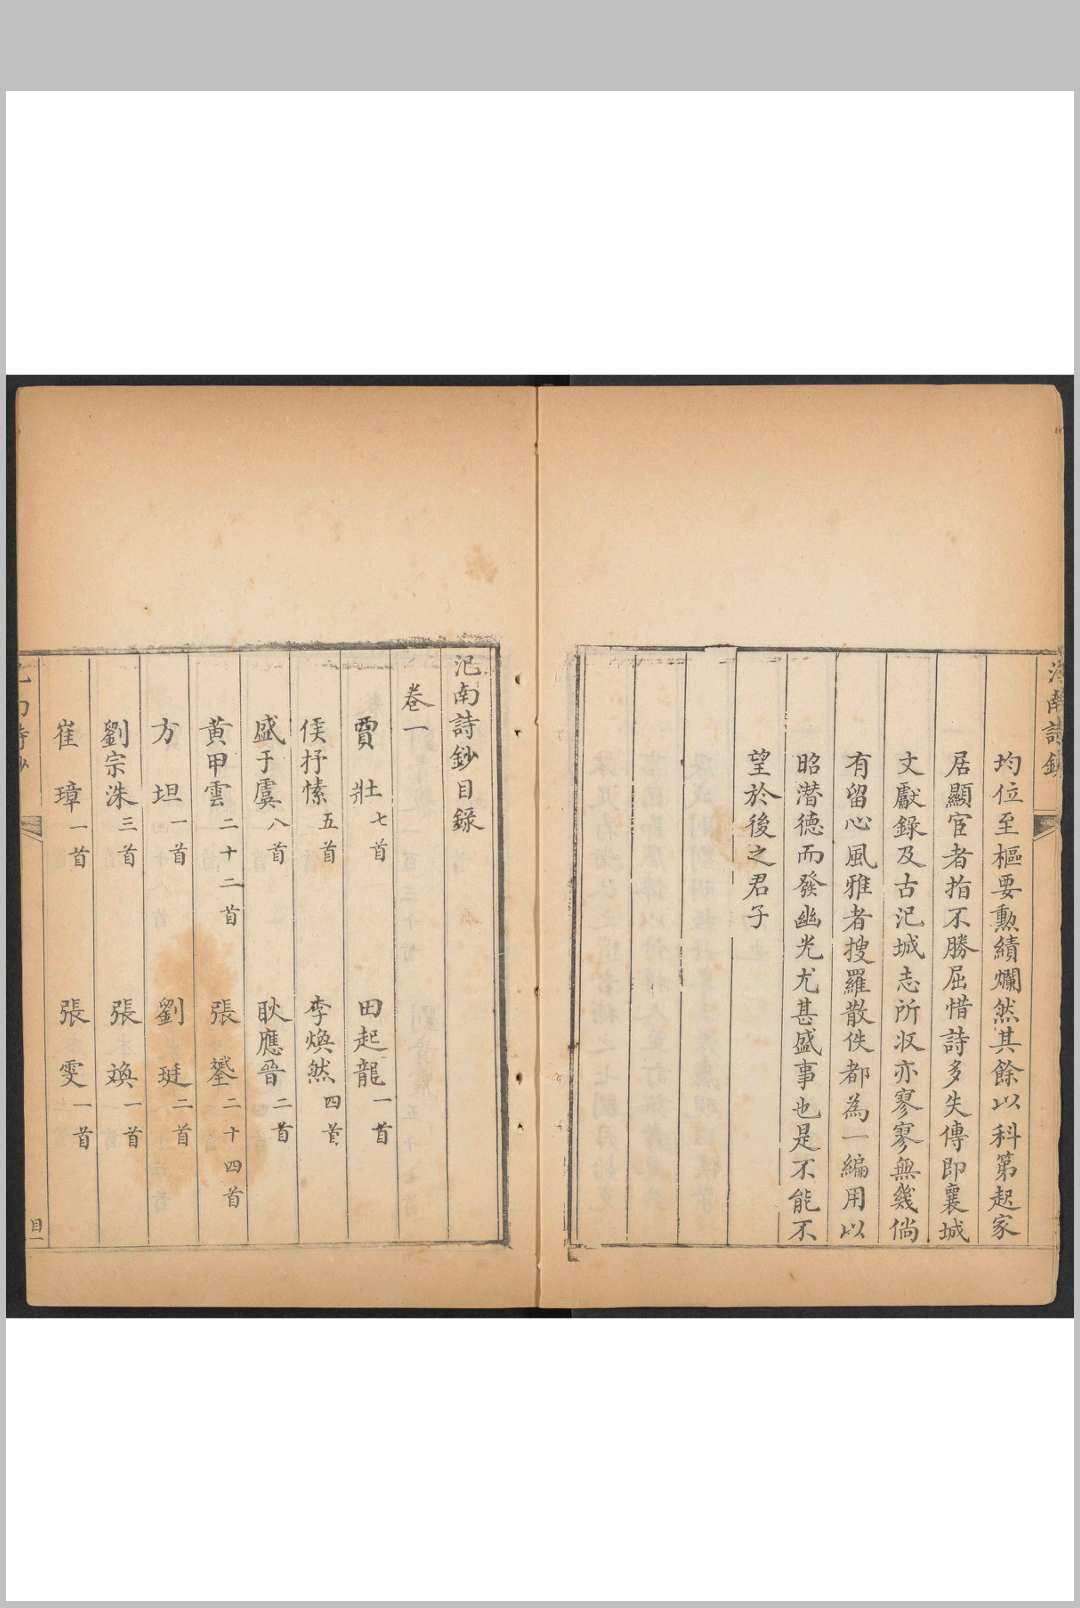 均位至樞要勲績爛然其餘以科第起家
居顯宦者指不勝屈惜詩多失傳即襄城
文獻錄及古汜城志所収亦寥寥無幾倘
有留心風雅者搜羅散佚都為一編用以
昭潜德而發幽光尤甚盛事也是不能不
望於後之君子
汜南詩鈔目錄
卷一
賈 壯 七首 田起龍 一首
侯抒愫 五首 李煥然 四首
盛于虞 八首 耿應晉 二首
黃甲雲 二十二首 張 鐢 二十四首
方 坦 一首 劉 珽 二首
劉宗洙 三首 張 㷄 一首
崔 璋 一首 張 雯 一首
目一